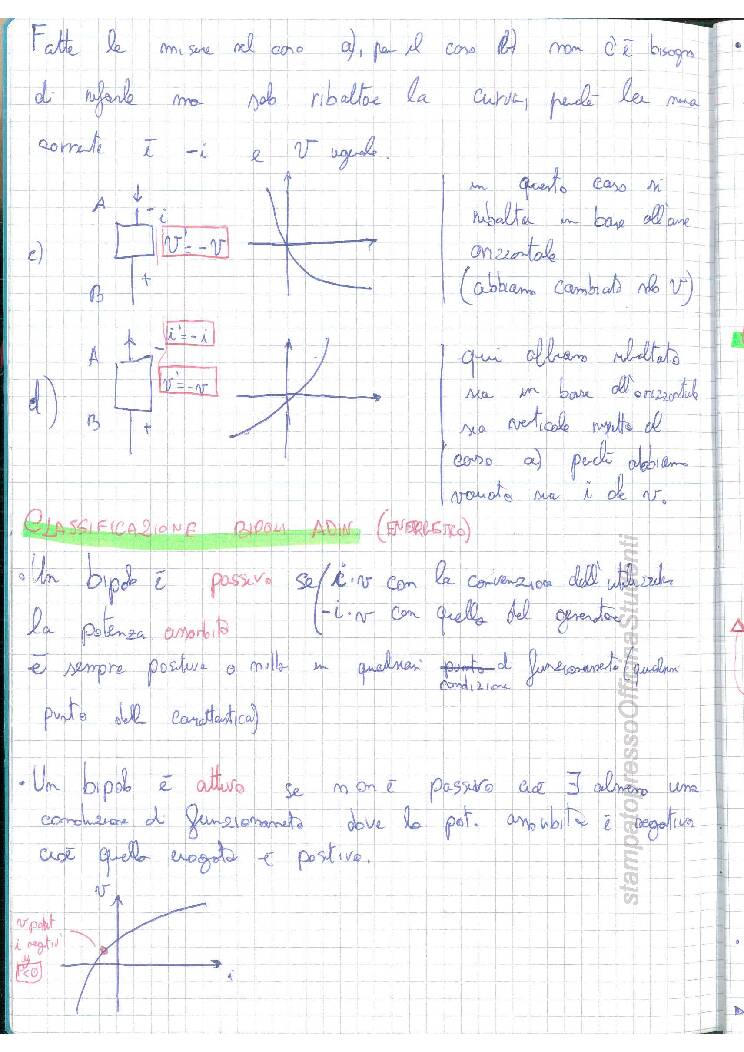 Fatte le misure nel caso a), per il caso b) non c'è bisogno
di rifarle ma solo ribaltare la curva, perché la mia
corrente è -i e V uguale.
in questo caso si
ribalta in base all'asse
orizzontale
(abbiamo cambiato solo V)
c)
A
- i
v'=-v
B
+
qui abbiamo ribaltato
sia in base all'orizzontale
sia verticale rispetto al
caso a) perché abbiamo
variato sia i che v.
d)
A
i'=-i
-
v'=-v
B
+
CLASSIFICAZIONE BIPOLI ADIN. (ENERGETICO)
• Un bipolo è passivo se i·v con la convenzione dell'utilizzatore
la potenza assorbita -i·v con quella del generatore
è sempre positiva o nulla in qualsiasi condizione di funzionamento (qualsiasi
punto della caratteristica)
• Un bipolo è attivo se non è passivo cioè ∃ almeno una
condizione di funzionamento dove la pot. assorbita è negativa
cioè quella erogata è positiva.
v
v posit
i negativ
P<0
i
stampatopressoOfficinaStudenti